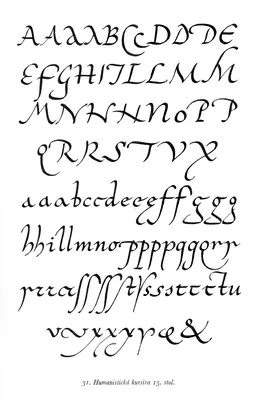 AAAABCcDDDE
EFGHIJLLMM
MNNNNNoPP
QRRSTVX
aaabccdeeeffggg
hhillmnoppppqqqrr
rrrraſſſſſtſssstttu
vvxxxyye&
31. Humanistická kursiva 15. stol.